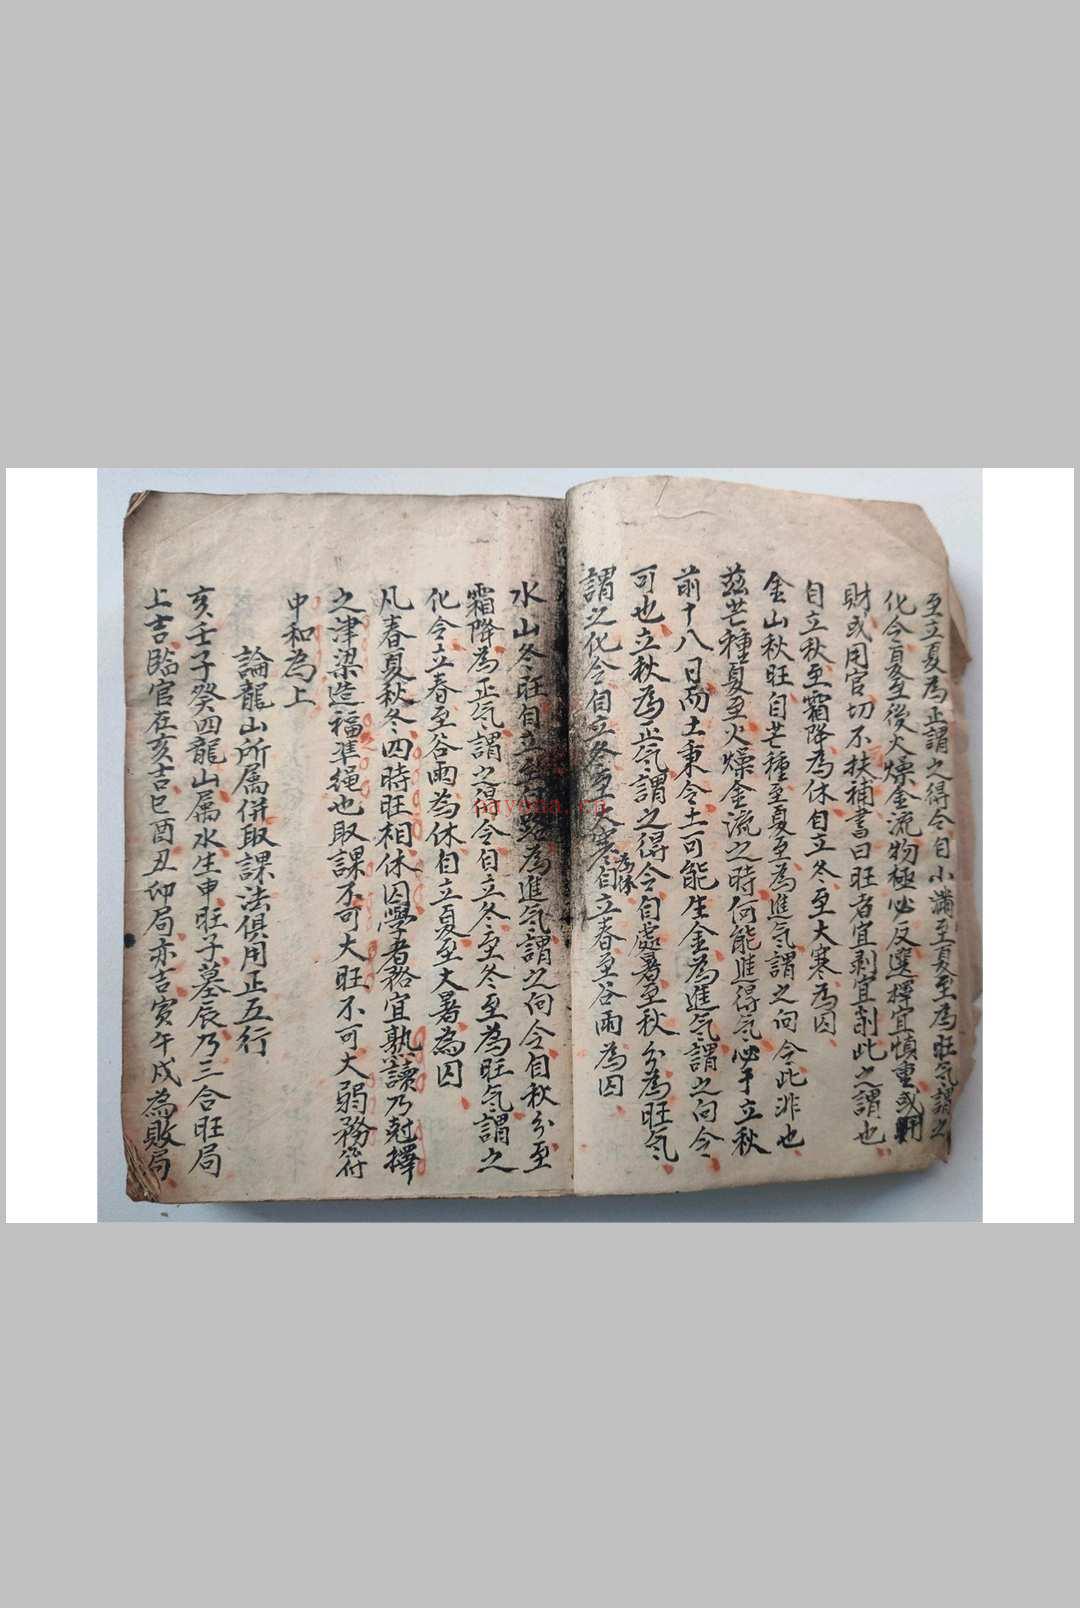 至立夏為正謂之得令自小滿至夏至為旺气謂之
化令夏至後火燥金流物極必反選擇宜慎重或用
財或用官切不扶補書曰旺者宜剥宜削此之謂也
自立秋至霜降為休自立冬至大寒為囚
金山秋旺自芒種至夏至為進气謂之向令此非也
茲芒種夏至火燥金流之時何能進得气必于立秋
前十八日而土秉令土可能生金為進气謂之向令
可也立秋為正气謂之得令自處暑至秋分為旺气
謂之化令自立冬至大寒為休自立春至谷雨為囚
水山冬旺自立秋白露為進气謂之向令自秋分至
霜降為正气謂之得令自立冬至冬至為旺气謂之
化令立春至谷雨為休自立夏至大暑為囚
凡春夏秋冬四時旺相休囚學者務宜熟讀乃尅擇
之津梁造福準绳也取課不可大旺不可大弱務
中和為上
論龍山所屬併取課法俱用正五行
亥壬子癸四龍山属水生申旺子墓辰乃三合旺局
上吉臨官在亥吉巳酉丑印局亦吉寅午戌為敗局
nayona.cn